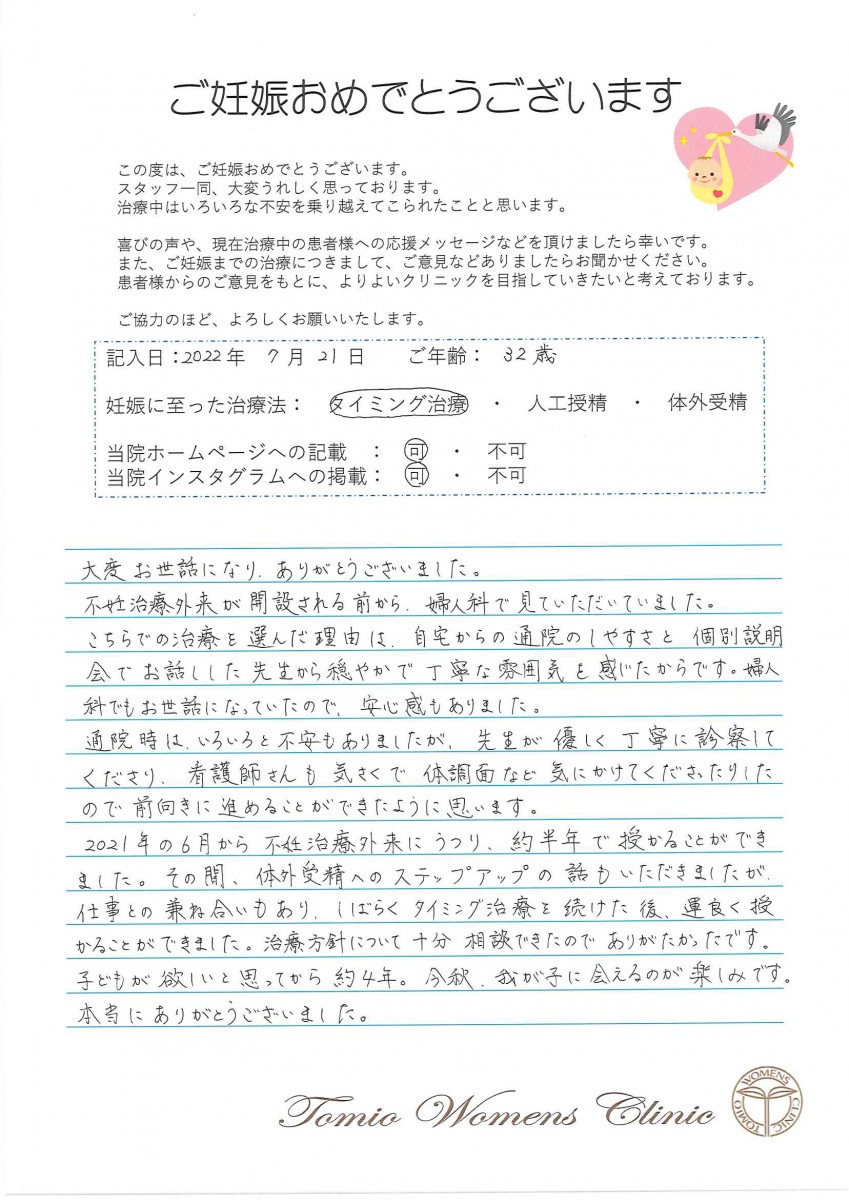 ご妊娠おめでとうございます
この度は、ご妊娠おめでとうございます。
スタッフ一同、大変うれしく思っております。
治療中はいろいろな不安を乗り越えてこられたことと思います。
喜びの声や、現在治療中の患者様への応援メッセージなどを頂けましたら幸いです。
また、ご妊娠までの治療につきまして、ご意見などありましたらお聞かせください。
患者様からのご意見をもとに、よりよいクリニックを目指していきたいと考えております。
ご協力のほど、よろしくお願いいたします。
記入日：2022年 7月 21日 ご年齢： 32歳
妊娠に至った治療法： タイミング治療 ・ 人工授精 ・ 体外受精
当院ホームページへの記載 ： 可 ・ 不可
当院インスタグラムへの掲載： 可 ・ 不可
大変お世話になり、ありがとうございました。
不妊治療外来が開設される前から、婦人科で見ていただいていました。
こちらでの治療を選んだ理由は、自宅からの通院のしやすさと個別説明
会でお話しした先生から穏やかで丁寧な雰囲気を感じたからです。婦人
科でもお世話になっていたので、安心感もありました。
通院時は、いろいろと不安もありましたが、先生が優しく丁寧に診察して
くださり、看護師さんも気さくで体調面など気にかけてくださったりした
ので前向きに進めることができたように思います。
2021年の6月から不妊治療外来にうつり、約半年で授かることができ
ました。その間、体外受精へのステップアップの話もいただきましたが、
仕事との兼ね合いもあり、しばらくタイミング治療を続けた後、運良く授
かることができました。治療方針について十分相談できたのでありがたかったです。
子どもが欲しいと思ってから約4年。今秋、我が子に会えるのが楽しみです。
本当にありがとうございました。
Tomio Womens Clinic
TOMIO WOMENS CLINIC